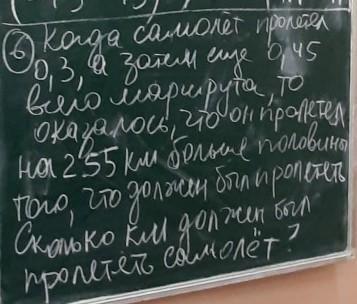 6 Когда самолёт пролетел
0,3, а затем еще 0,45
всего маршрута, то
оказалось, что он пролетел
на 255 км больше половины
того, что должен был пролететь
Сколько км должен был
пролететь самолёт?